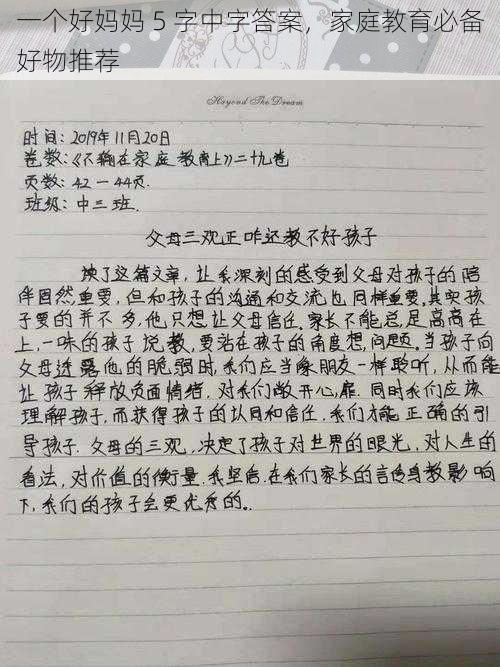 一个好妈妈 5 字中字答案，家庭教育必备
好物推荐
Heyond The Dream
时间：2019年11月20日
卷数：《不输在家庭教育上》二十九卷
页数：42－44页.
班级：中三班.
父母三观正咋还教不好孩子
读了这篇文章，让我深刻的感受到父母对孩子的陪
伴固然重要，但和孩子的沟通和交流也同样重要.其实孩
子要的并不多，他只想让父母信任.家长不能总是高高在
上，一味的孩子说教，要站在孩子的角度想问题.当孩子向
父母透露他的脆弱时，我们应当像朋友一样聆听，从而能
让孩子释放负面情绪，对我们敞开心扉.同时我们应该
理解孩子，而获得孩子的认同和信任.我们才能正确的引
导孩子.父母的三观，决定了孩子对世界的眼光，对人生的
看法，对价值的衡量.我坚信.在我们家长的言传身教影响
下，我们的孩子会更优秀的..